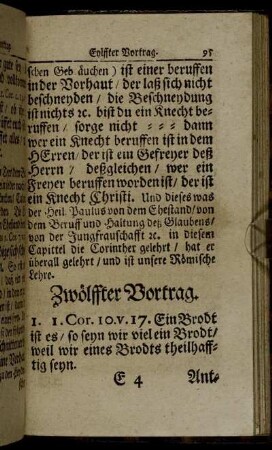 Eylffter Vortrag. 95
schen Geb äuchen) ist einer beruffen
in der Vorhaut / der laß sich nicht
beschneyden / die Beschneydung
ist nichts ꝛc. bist du ein Knecht be-
ruffen / sorge nicht ⸗ ⸗ ⸗ dann
wer ein Knecht beruffen ist in dem
HErren / der ist ein Gefreyer deß
Herrn / deßgleichen / wer ein
Freyer beruffen worden ist / der ist
ein Knecht Christi. Und dieses was
der Heil. Paulus von dem Ehestand / von
dem Beruff und Haltung deß Glaubens /
von der Jungfrauschafft ꝛc. in diesem
Capittel die Corinther gelehrt / hat er
überall gelehrt / und ist unsere Römische
Lehre.
Zwölffter Vortrag.
1. 1. Cor. 10. v. 17. Ein Brodt
ist es / so seyn wir viel ein Brodt /
weil wir eines Brodts theilhaff-
tig seyn.
E 4 Ant-